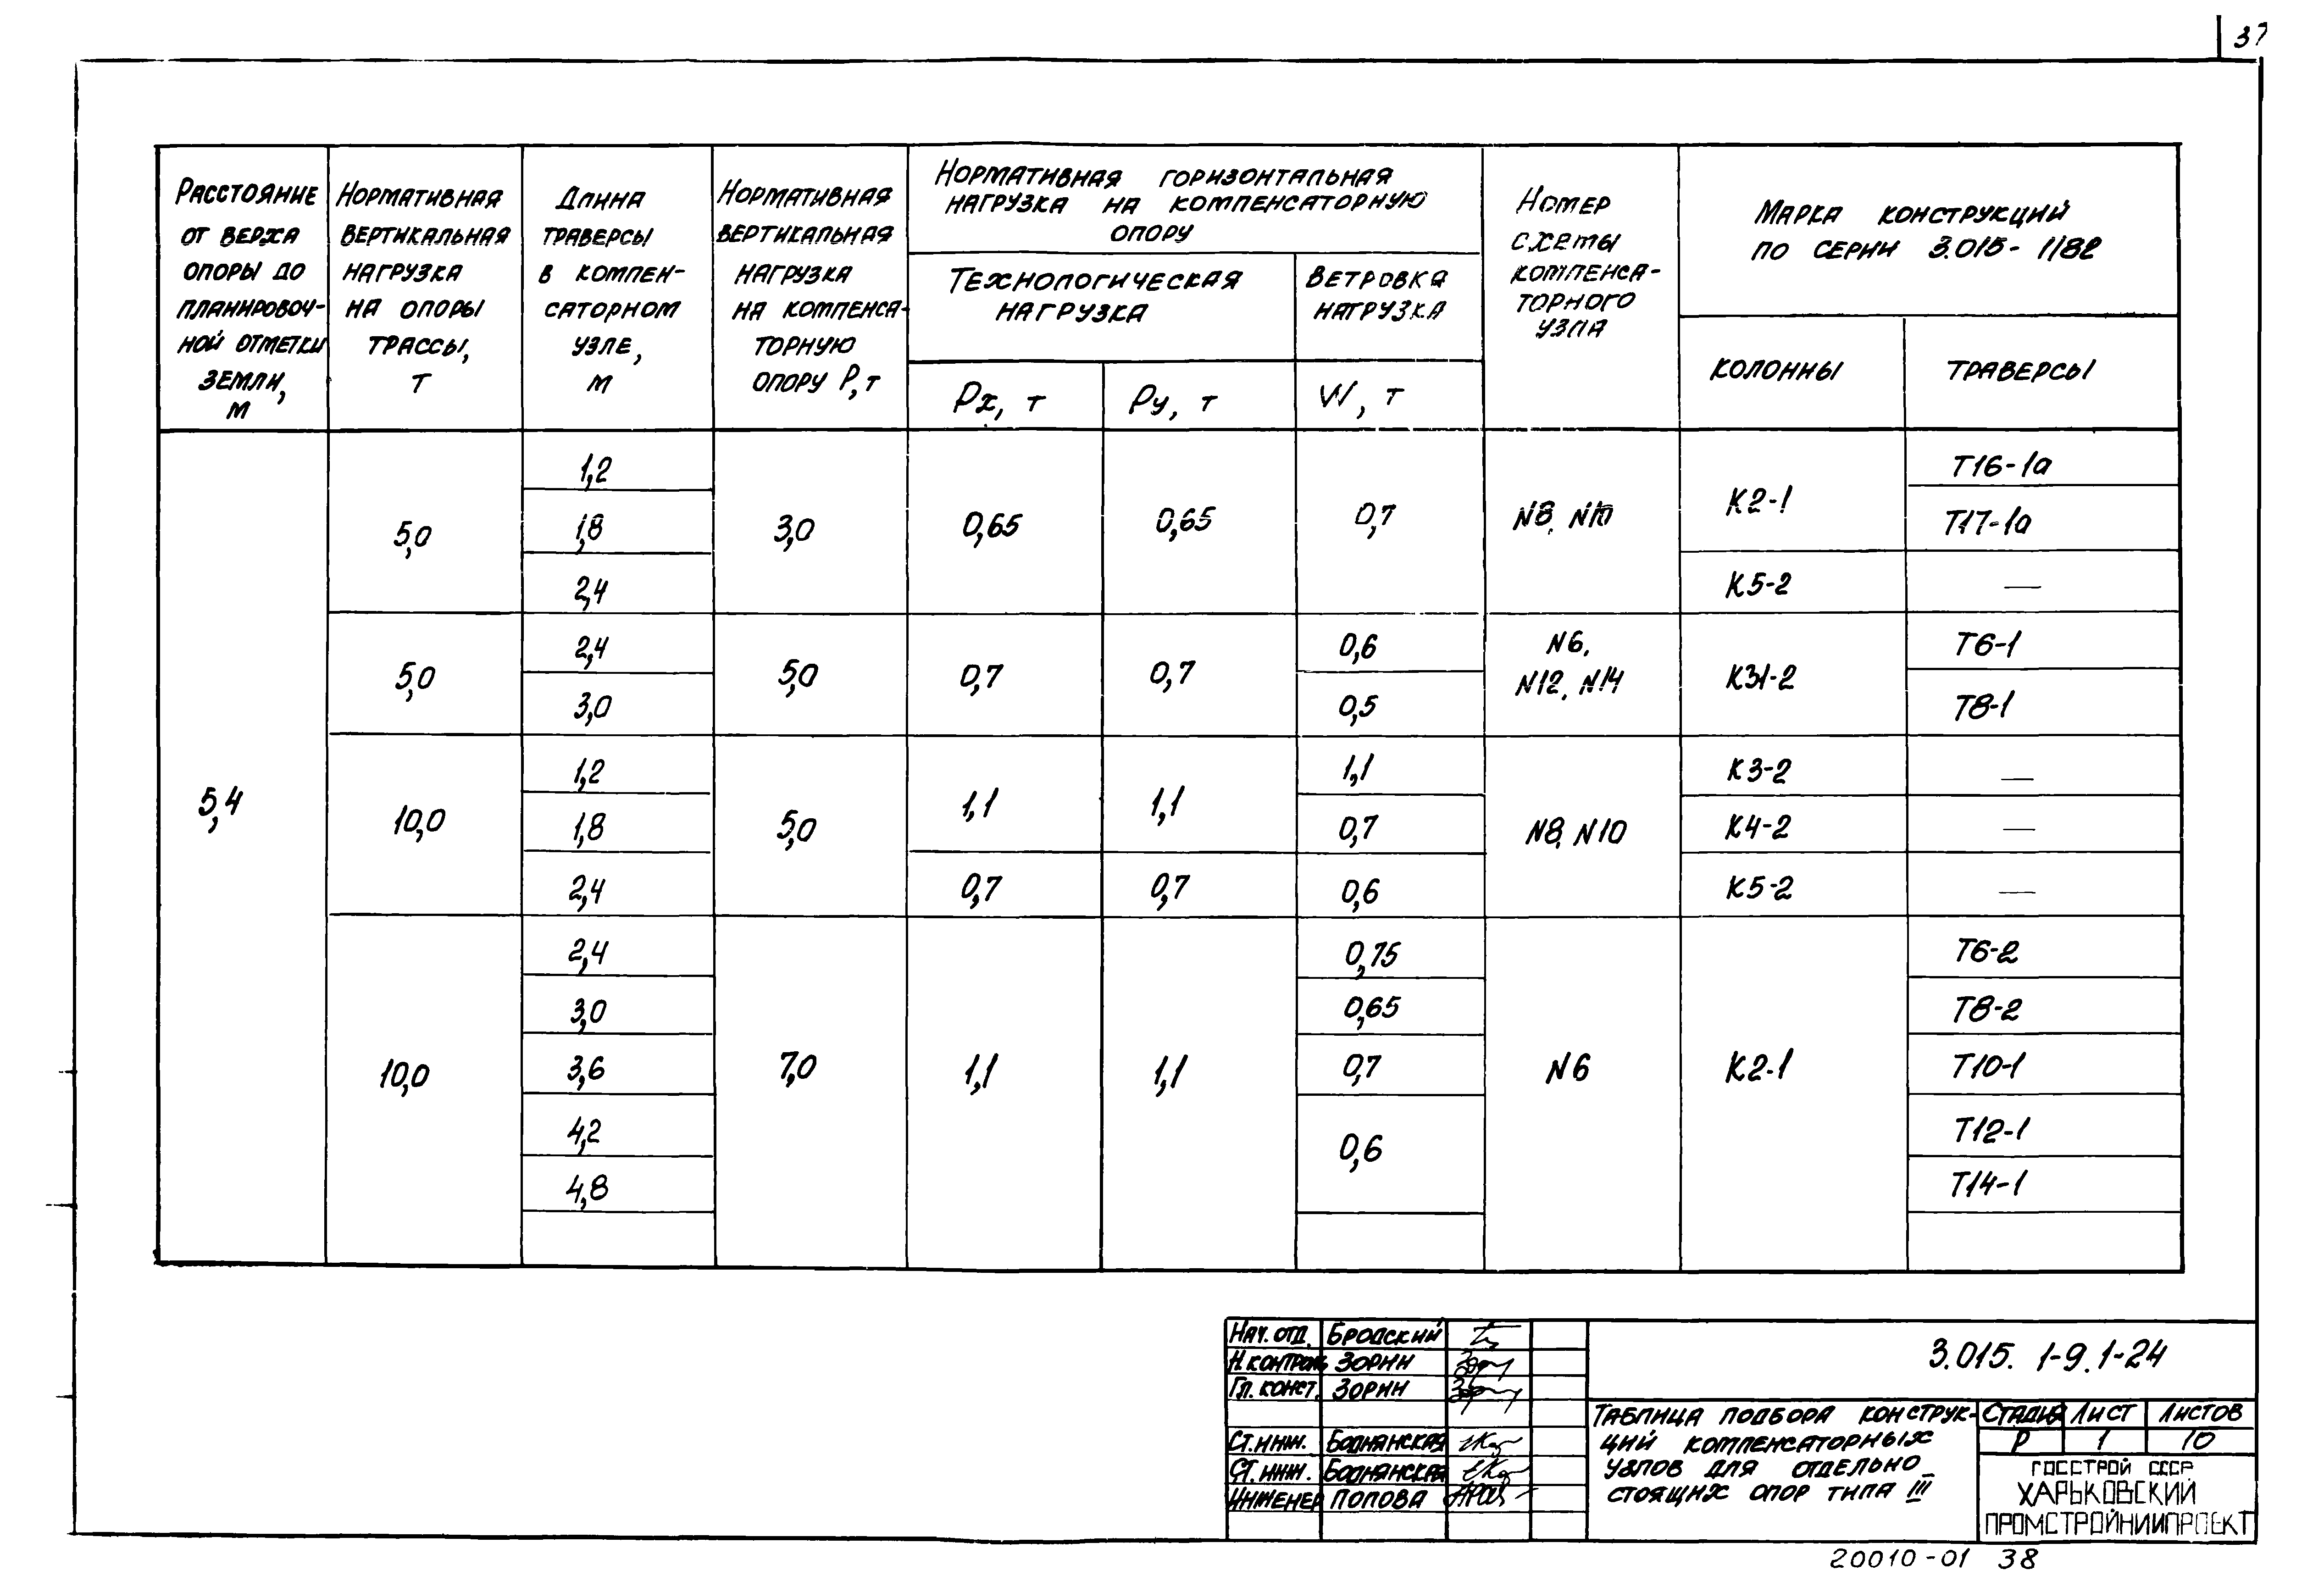 37
Расстояние
от верха
опоры до
планировоч-
ной отметки
земли,
м
Нормативная
вертикальная
нагрузка
на опоры
трассы,
т
Длина
траверсы
в компен-
саторном
узле,
м
Нормативная
вертикальная
нагрузка
на компенса-
торную
опору P, т
Нормативная горизонтальная
нагрузка на компенсаторную
опору
Технологическая
нагрузка
Ветровка
нагрузка
Px, т
Py, т
W, т
Номер
схемы
компенса-
торного
узла
Марка конструкций
по серии 3.015-1/82
колонны
траверсы
5,4
5,0
1,2
1,8
2,4
3,0
0,65
0,65
0,7
N8, N10
К2-1
Т16-1а
Т17-1а
К5-2
—
5,0
2,4
3,0
5,0
0,7
0,7
0,6
0,5
N6,
N12, N14
К31-2
Т6-1
Т8-1
10,0
1,2
1,8
2,4
5,0
1,1
1,1
0,7
0,7
1,1
0,7
0,6
N8, N10
К3-2
—
К4-2
—
К5-2
—
10,0
2,4
3,0
3,6
4,2
4,8
7,0
1,1
1,1
0,75
0,65
0,7
0,6
N6
К2-1
Т6-2
Т8-2
Т10-1
Т12-1
Т14-1
Нач. отд. Бродский
Н.контроль Зорин
Гл. конст. Зорин
Ст. инж. Боднянская
Ст. инж. Боднянская
Инженер Попова
3.015.1-9.1-24
Таблица подбора конструк-
ций компенсаторных
узлов для отдельно
стоящих опор типа III
Стадия Лист Листов
Р 1 10
Госстрой СССР
Харьковский
ПРОМСТРОЙНИИПРОЕКТ
20010-01 38